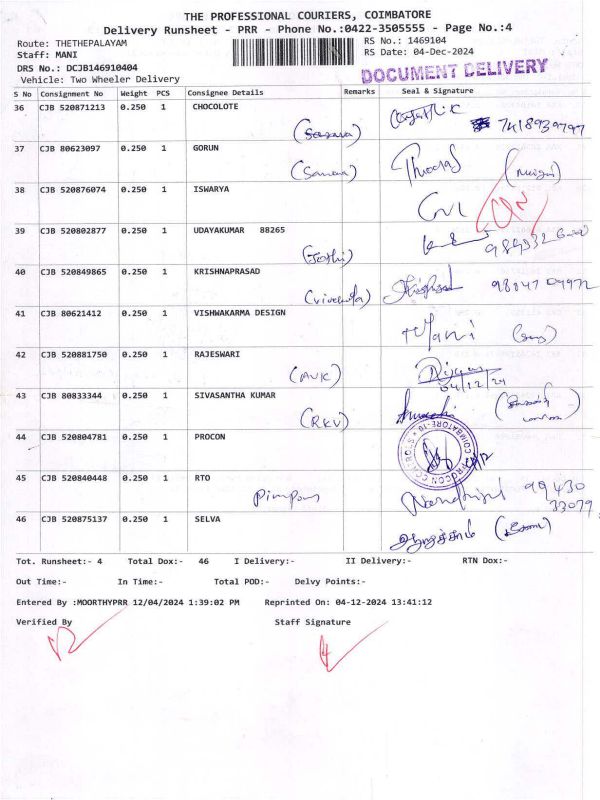 THE PROFESSIONAL COURIERS, COIMBATORE
Delivery Runsheet - PRR - Phone No.:0422-3505555 - Page No.:4
Route: THETHEPALAYAM RS No.: 1469104
Staff: MANI RS Date: 04-Dec-2024
DRS No.: DCJB146910404
DOCUMENT DELIVERY
Vehicle: Two Wheeler Delivery
S No Consignment No Weight PCS Consignee Details Remarks Seal & Signature
36 CJB 520871213 0.250 1 CHOCOLOTE
7418939797
37 CJB 80623097 0.250 1 GORUN
38 CJB 520876074 0.250 1 ISWARYA
39 CJB 520802877 0.250 1 UDAYAKUMAR 88265
(Jothi)
40 CJB 520849865 0.250 1 KRISHNAPRASAD
41 CJB 80621412 0.250 1 VISHWAKARMA DESIGN
Mani
42 CJB 520881750 0.250 1 RAJESWARI
(AVK) 04/12/24
43 CJB 80833344 0.250 1 SIVASANTHA KUMAR
(RKV)
44 CJB 520804781 0.250 1 PROCON
PROCON CONTROLS COIMBATORE-10
45 CJB 520840448 0.250 1 RTO
99430
33079
46 CJB 520875137 0.250 1 SELVA
Tot. Runsheet:- 4 Total Dox:- 46 I Delivery:- II Delivery:- RTN Dox:-
Out Time:- In Time:- Total POD:- Delvy Points:-
Entered By :MOORTHYPRR 12/04/2024 1:39:02 PM Reprinted On: 04-12-2024 13:41:12
Verified By Staff Signature